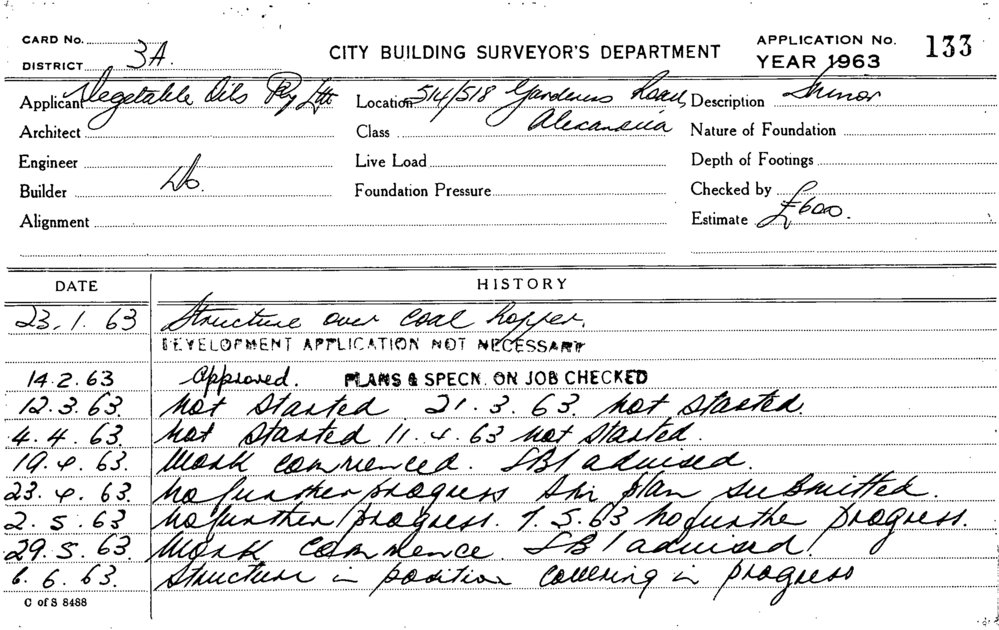 CARD No.
DISTRICT 3A.
CITY BUILDING SURVEYOR'S DEPARTMENT
APPLICATION No. 133
YEAR 1963
Applicant Vegetable Oils Pty Ltd
Location 514/518 Gardeners Road,
Alexandria
Description Minor
Architect
Class
Nature of Foundation
Engineer
Live Load
Depth of Footings
Builder Do.
Foundation Pressure
Checked by
Alignment
Estimate £600.
DATE HISTORY
23.1.63 Structure over coal hopper.
DEVELOPMENT APPLICATION NOT NECESSARY
14.2.63 Approved. PLANS & SPECN. ON JOB CHECKED
12.3.63. Not started 21.3.63. Not started.
4.4.63. Not started 11.4.63 not started.
19.4.63. Work commenced. advised.
23.4.63. No further progress plan submitted.
2.5.63 No further progress. 7.5.63 No furthe progress.
29.5.63. Work commence. advised.
6.6.63. Structure in position covering in progress
C of S 8488